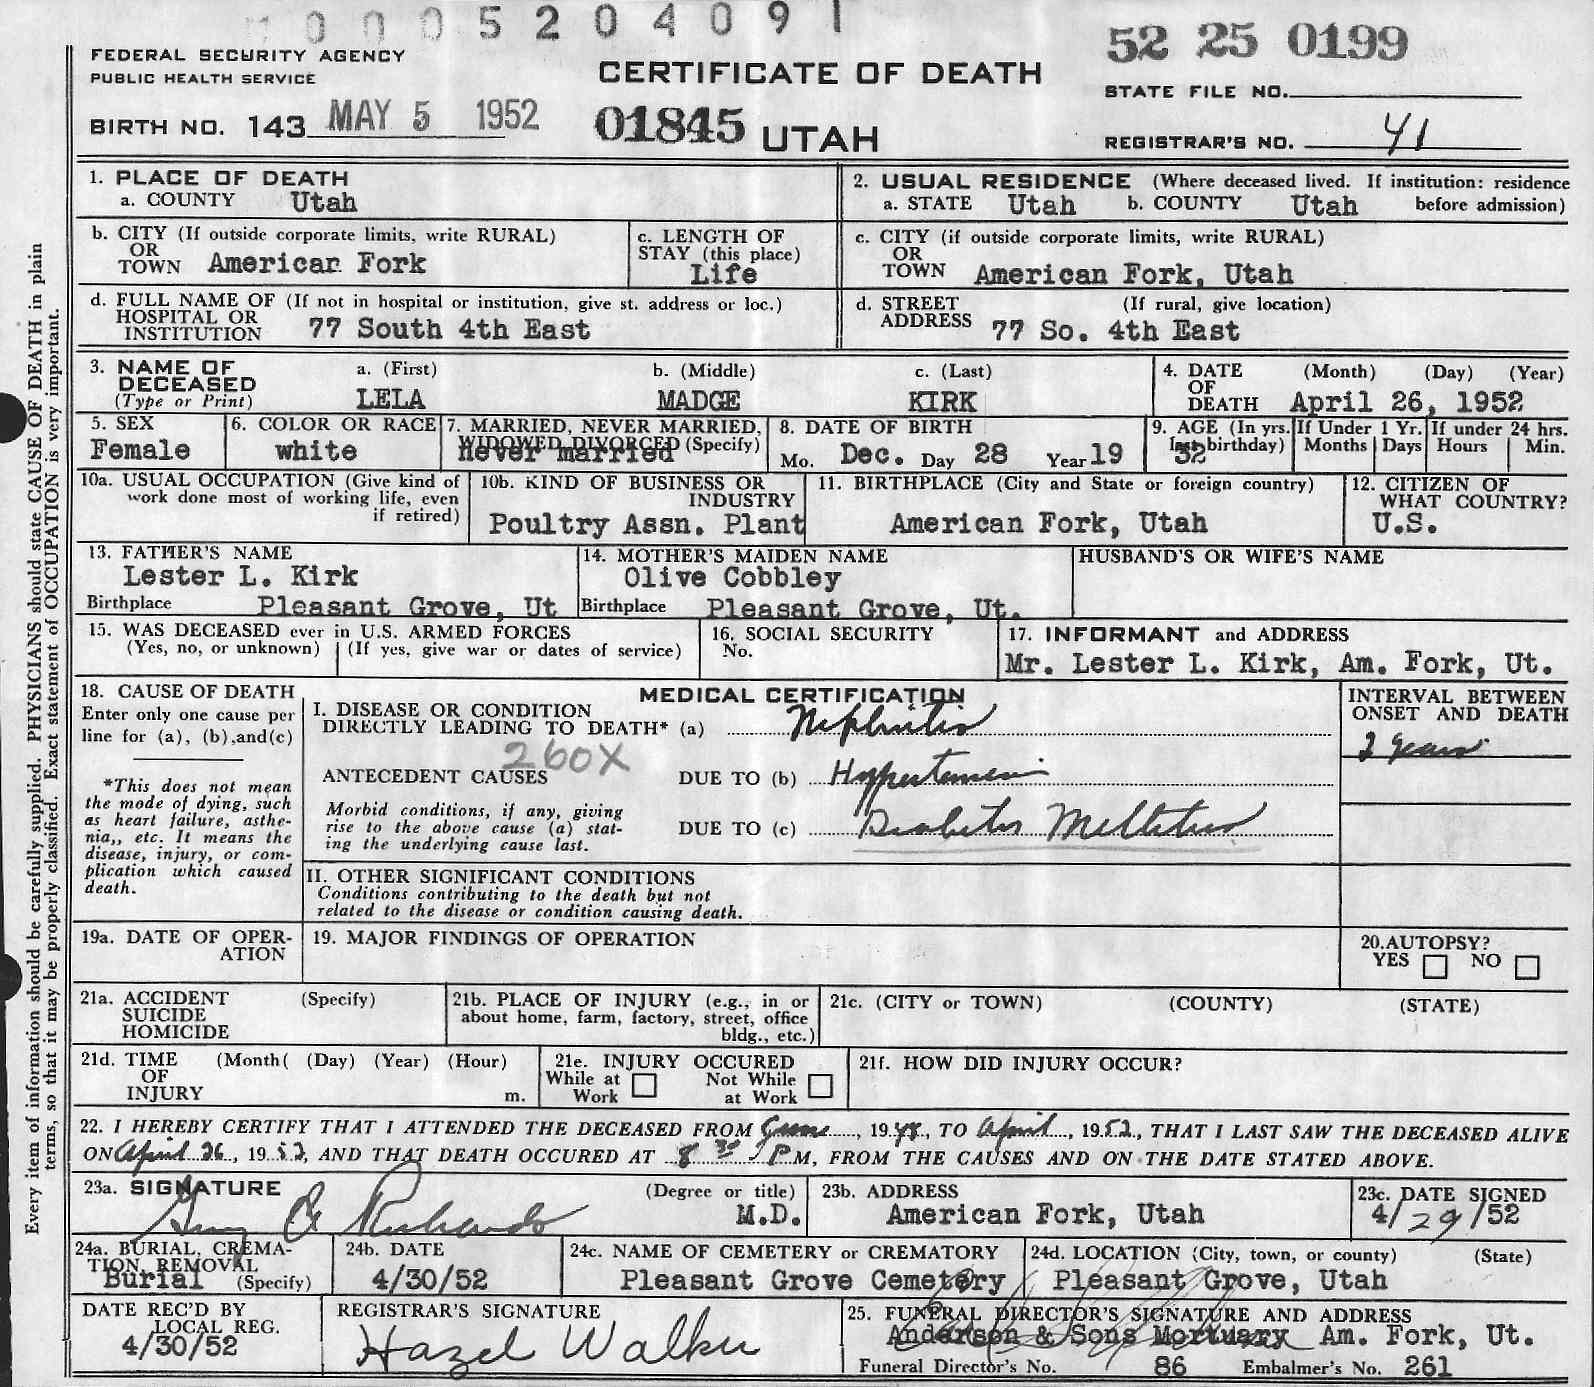 0 0 0 5 2 0 4 0 9 1
52 25 0199
FEDERAL SECURITY AGENCY
PUBLIC HEALTH SERVICE
CERTIFICATE OF DEATH
STATE FILE NO.
BIRTH NO. 143 MAY 5 1952
01845 UTAH
REGISTRAR'S NO. 41
1. PLACE OF DEATH
a. COUNTY Utah
2. USUAL RESIDENCE (Where deceased lived. If institution: residence before admission)
a. STATE Utah b. COUNTY Utah
b. CITY (If outside corporate limits, write RURAL)
OR
TOWN American Fork
c. LENGTH OF
STAY (this place)
Life
c. CITY (if outside corporate limits, write RURAL)
OR
TOWN American Fork, Utah
d. FULL NAME OF (If not in hospital or institution, give st. address or loc.)
HOSPITAL OR
INSTITUTION 77 South 4th East
d. STREET (If rural, give location)
ADDRESS 77 So. 4th East
3. NAME OF
DECEASED
(Type or Print)
a. (First) b. (Middle) c. (Last)
LELA MADGE KIRK
4. DATE (Month) (Day) (Year)
OF
DEATH April 26, 1952
5. SEX
Female
6. COLOR OR RACE
white
7. MARRIED, NEVER MARRIED,
WIDOWED DIVORCED (Specify)
Never married
8. DATE OF BIRTH
Mo. Dec. Day 28 Year 19
9. AGE (In yrs.
last birthday)
32
If Under 1 Yr.
Months Days
If under 24 hrs.
Hours Min.
10a. USUAL OCCUPATION (Give kind of
work done most of working life, even
if retired)
10b. KIND OF BUSINESS OR
INDUSTRY
Poultry Assn. Plant
11. BIRTHPLACE (City and State or foreign country)
American Fork, Utah
12. CITIZEN OF
WHAT COUNTRY?
U.S.
13. FATHER'S NAME
Lester L. Kirk
Birthplace Pleasant Grove, Ut
14. MOTHER'S MAIDEN NAME
Olive Cobbley
Birthplace Pleasant Grove, Ut.
HUSBAND'S OR WIFE'S NAME
15. WAS DECEASED ever in U.S. ARMED FORCES
(Yes, no, or unknown) (If yes, give war or dates of service)
16. SOCIAL SECURITY
No.
17. INFORMANT and ADDRESS
Mr. Lester L. Kirk, Am. Fork, Ut.
18. CAUSE OF DEATH
Enter only one cause per
line for (a), (b),and(c)
*This does not mean
the mode of dying, such
as heart failure, asthe-
nia,, etc. It means the
disease, injury, or com-
plication which caused
death.
MEDICAL CERTIFICATION
I. DISEASE OR CONDITION
DIRECTLY LEADING TO DEATH* (a) Nephritis
260X
ANTECEDENT CAUSES DUE TO (b) Hypertension
Morbid conditions, if any, giving
rise to the above cause (a) stat-
ing the underlying cause last.
DUE TO (c) Diabetes Mellitus
INTERVAL BETWEEN
ONSET AND DEATH
2 years
II. OTHER SIGNIFICANT CONDITIONS
Conditions contributing to the death but not
related to the disease or condition causing death.
19a. DATE OF OPER-
ATION
19. MAJOR FINDINGS OF OPERATION
20.AUTOPSY?
YES NO
21a. ACCIDENT (Specify)
SUICIDE
HOMICIDE
21b. PLACE OF INJURY (e.g., in or
about home, farm, factory, street, office
bldg., etc.)
21c. (CITY or TOWN) (COUNTY) (STATE)
21d. TIME (Month( (Day) (Year) (Hour)
OF
INJURY m.
21e. INJURY OCCURED
While at Work Not While at Work
21f. HOW DID INJURY OCCUR?
22. I HEREBY CERTIFY THAT I ATTENDED THE DECEASED FROM June, 1948, TO April, 1952, THAT I LAST SAW THE DECEASED ALIVE
ON April 26, 1952, AND THAT DEATH OCCURED AT 8 30 P M, FROM THE CAUSES AND ON THE DATE STATED ABOVE.
23a. SIGNATURE (Degree or title)
Guy Richards M.D.
23b. ADDRESS
American Fork, Utah
23c. DATE SIGNED
4/29/52
24a. BURIAL, CREMA-
TION, REMOVAL
Burial (Specify)
24b. DATE
4/30/52
24c. NAME OF CEMETERY or CREMATORY
Pleasant Grove Cemetery
24d. LOCATION (City, town, or county) (State)
Pleasant Grove, Utah
DATE REC'D BY
LOCAL REG.
4/30/52
REGISTRAR'S SIGNATURE
Hazel Walker
25. FUNERAL DIRECTOR'S SIGNATURE AND ADDRESS
Anderson & Sons Mortuary Am. Fork, Ut.
Funeral Director's No. 86 Embalmer's No. 261
Every item of information should be carefully supplied. PHYSICIANS should state CAUSE OF DEATH in plain
terms, so that it may be properly classified. Exact statement of OCCUPATION is very important.